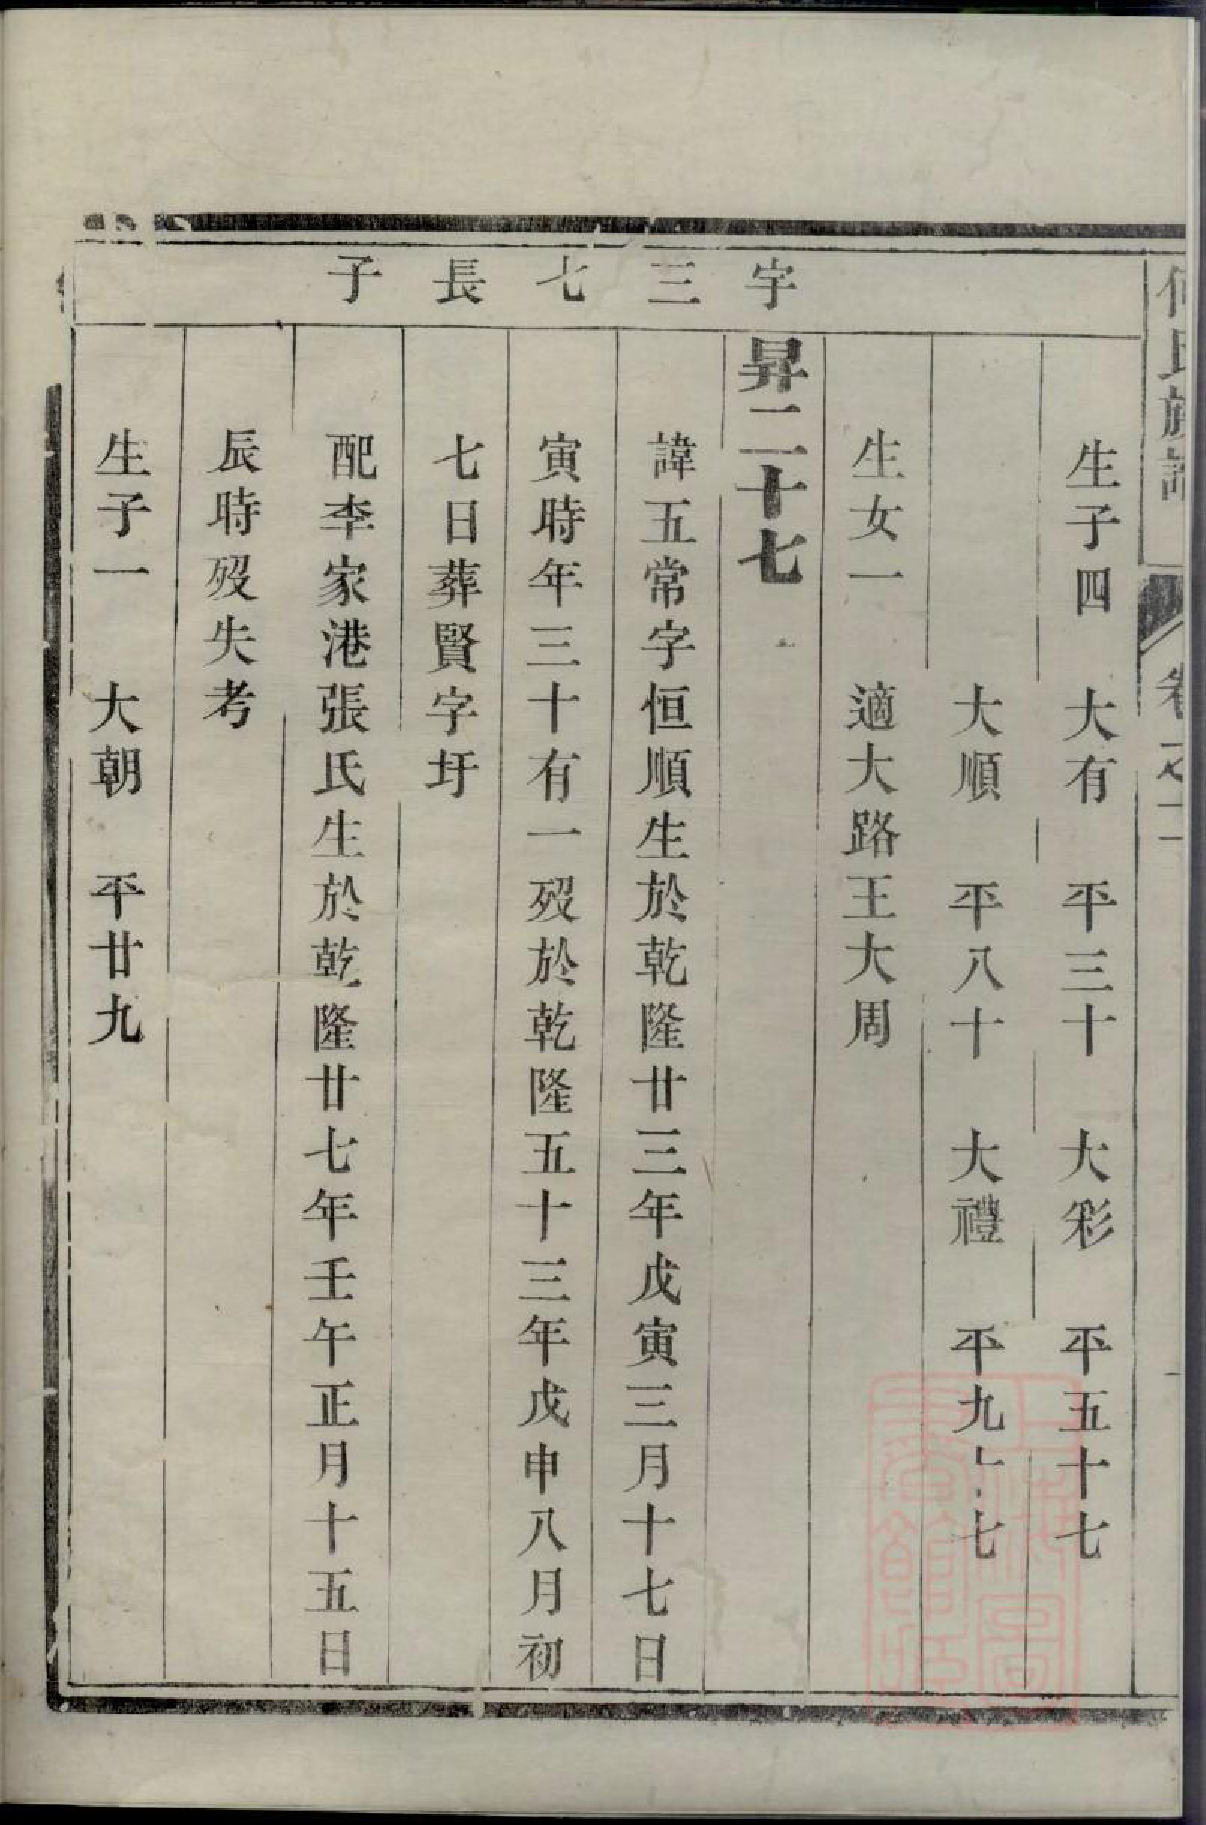 何氏族譜
卷之二
生子四 大有 平三十 大彩 平五十七
大順 平八十 大禮 平九十七
生女一 適大路王大周
宇三七長子
昇二十七
諱五常字恒順生於乾隆廿三年戊寅三月十七日
寅時年三十有一歿於乾隆五十三年戊申八月初
七日葬賢字圩
配李家港張氏生於乾隆廿七年壬午正月十五日
辰時歿失考
生子一 大朝 平廿九